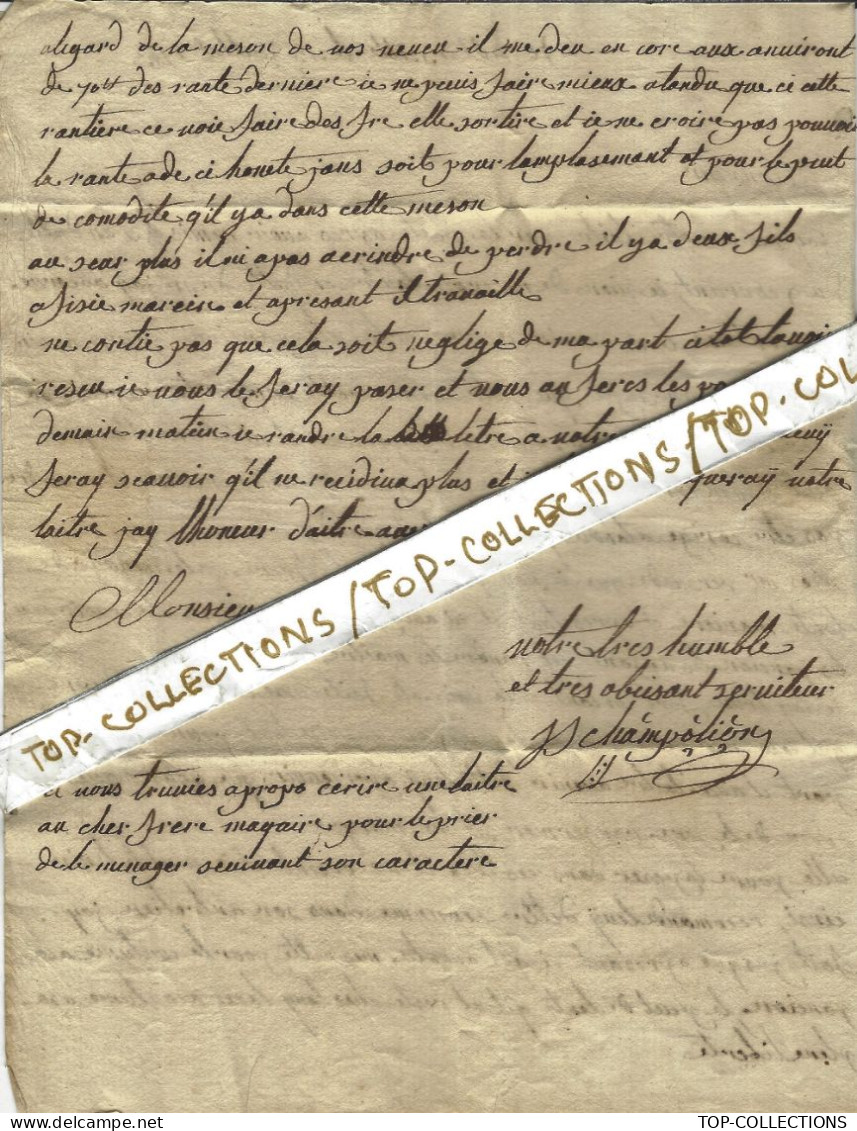 alegard de la meson de vos neveu il me deu en core aux anviront
de 70tt des rante derniere ie ne peuis faire mieux atandu que ci cette
rantiere ce voie faire des fre elle sortire et ie ne croire pas pouvoir
la rante a de ci honete jans soit pour lamplasement et pour le peut
de comodite q'il y a dans cette meson
au seur plus il ni a pas a crindre de perdre il y a deux fils
a fisie marein et apresant il travaille
ne contie pas que cela soit neglige de ma part citot lavoir
reseu ie vous le feray paser et vous an feres les
demain matein ie randre la letre a votre
feray scauoir q'il ne recidiva plus et queray votre
laitre jay lhoneur d'aitre avec
Monsieu
votre tres humble
et tres obeisant serviteur
JJ champolion
vous truvies apropo cerire une laitre
au cher frere magaire pour le prier
de le menager seuivant son caractere
TOP-COLLECTIONS / TOP-COLLECTIONS / TOP-COL
TOP-COLLECTIONS